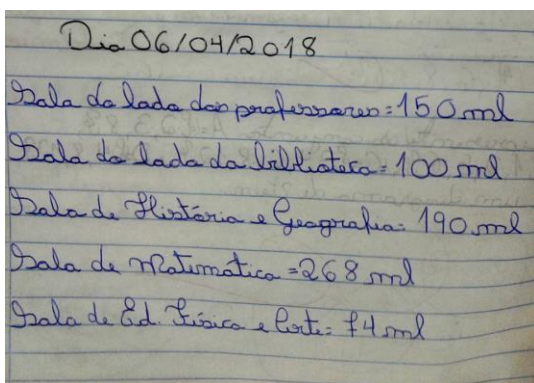 Dia 06/04/2018
Sala do lado dos professores = 150 ml
Sala do lado da biblioteca = 100 ml
Sala de História e Geografia = 190 ml
Sala de Matemática = 268 ml
Sala de Ed. Física e Arte = 74 ml